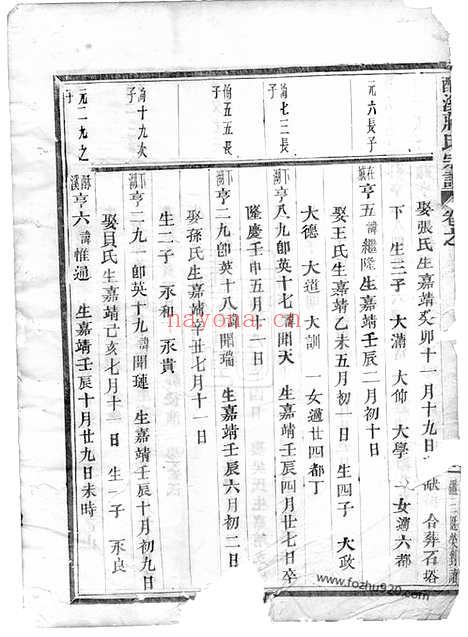 娶張氏生嘉靖癸卯十一月十九日 獻 合葬石塔
下 生三子 大滿 大仲 大學 一女適六都
元六長子
亨五諱繼隆生嘉靖壬辰二月初十日
娶王氏生嘉靖乙未五月初一日 生四子 大政
大德 大道 大訓 一女適廿四都丁
七三長子
亨八九卽英十七諱聞天 生嘉靖壬辰四月廿七日卒
隆慶壬申五月十一日
五五長子
亨二九卽英十八諱聞瑞 生嘉靖壬辰六月初二日
娶孫氏生嘉靖辛丑七月十一日
生二子 永和 永貴
十九次子
亨二九一卽英十九諱聞璉 生嘉靖壬辰十月初九日
娶貝氏生嘉靖己亥七月十二日 生一子 永良
元二九之子
亨六諱惟通 生嘉靖壬辰十月廿九日未時
nayona.cn
www.fozhu920.com